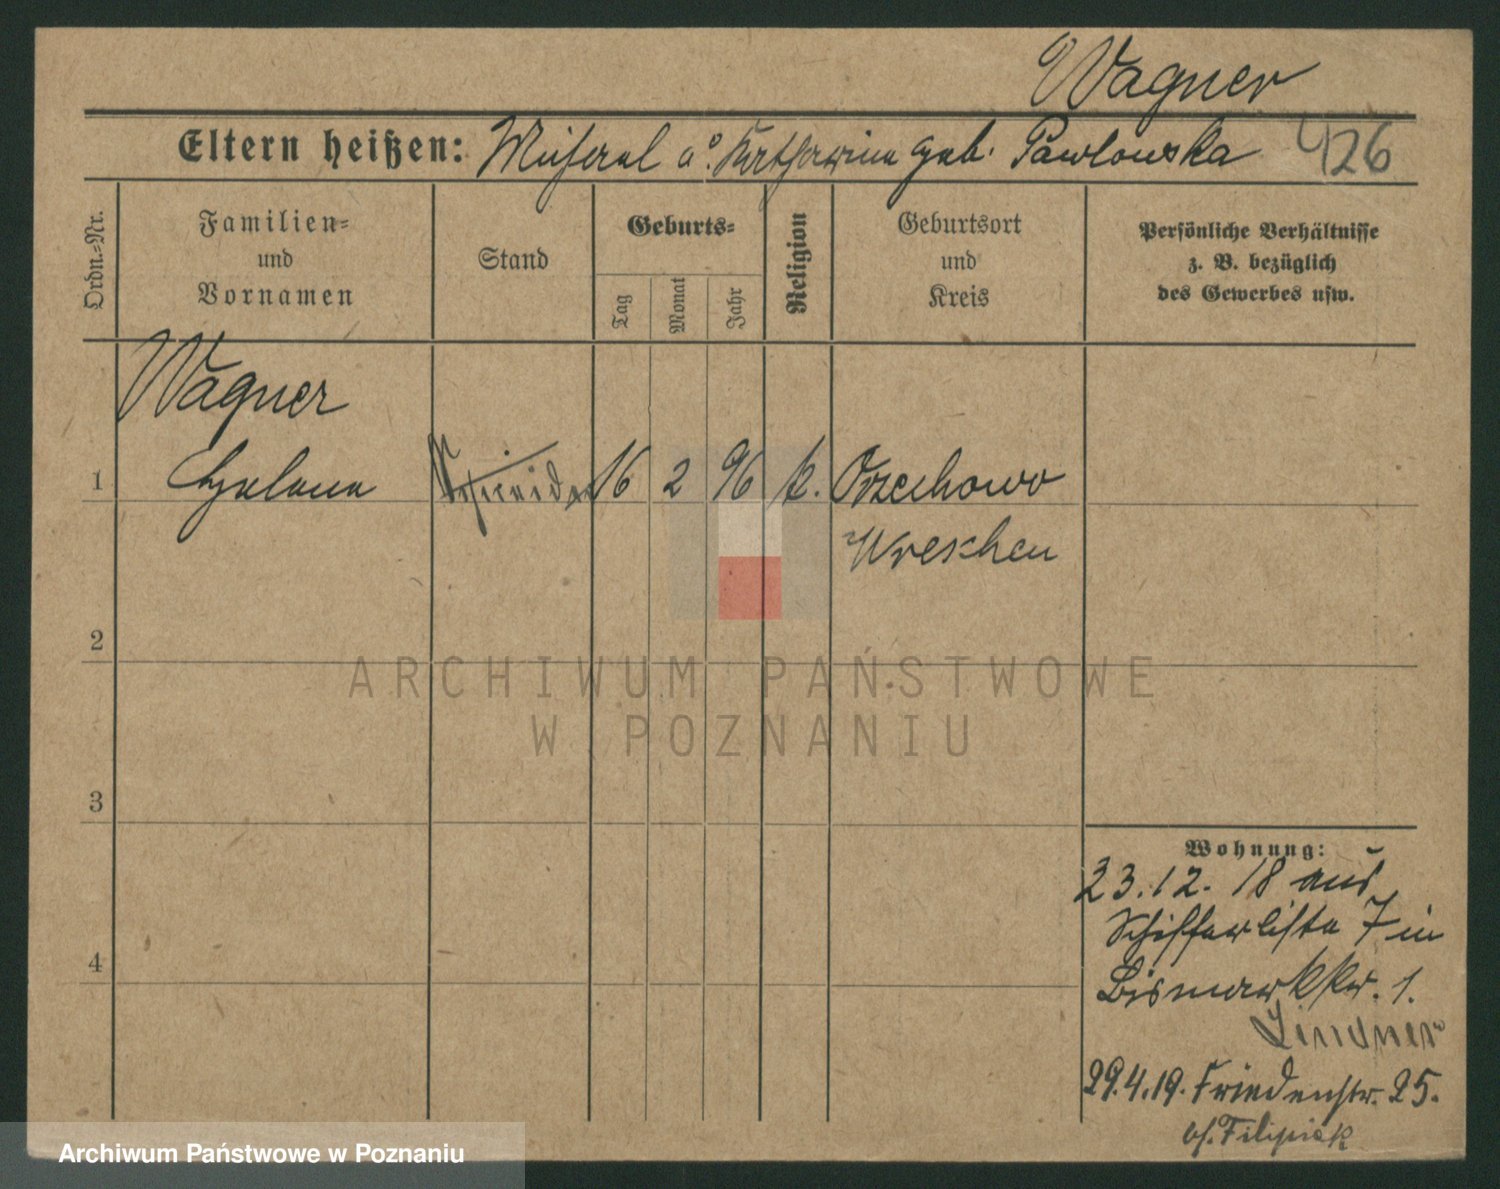 Wagner
Eltern heißen: Michael u. Katharina geb. Pawlowska 426
Ordn.-Nr.
Familien-
und
Vornamen
Stand
Geburts-
Tag
Monat
Jahr
Religion
Geburtsort
und
Kreis
Persönliche Verhältnisse
z. B. bezüglich
des Gewerbes usw.
Wagner
1 Helena 16 2 96 k. Orzechowo
Wreschen
2
ARCHIWUM PAŃSTWOWE
W POZNANIU
3
Wohnung:
23.12.18 aus
7 in
4
1.
Lindner
29.4.19. Friedenstr. 25.
b/. Filipiak
Archiwum Państwowe w Poznaniu